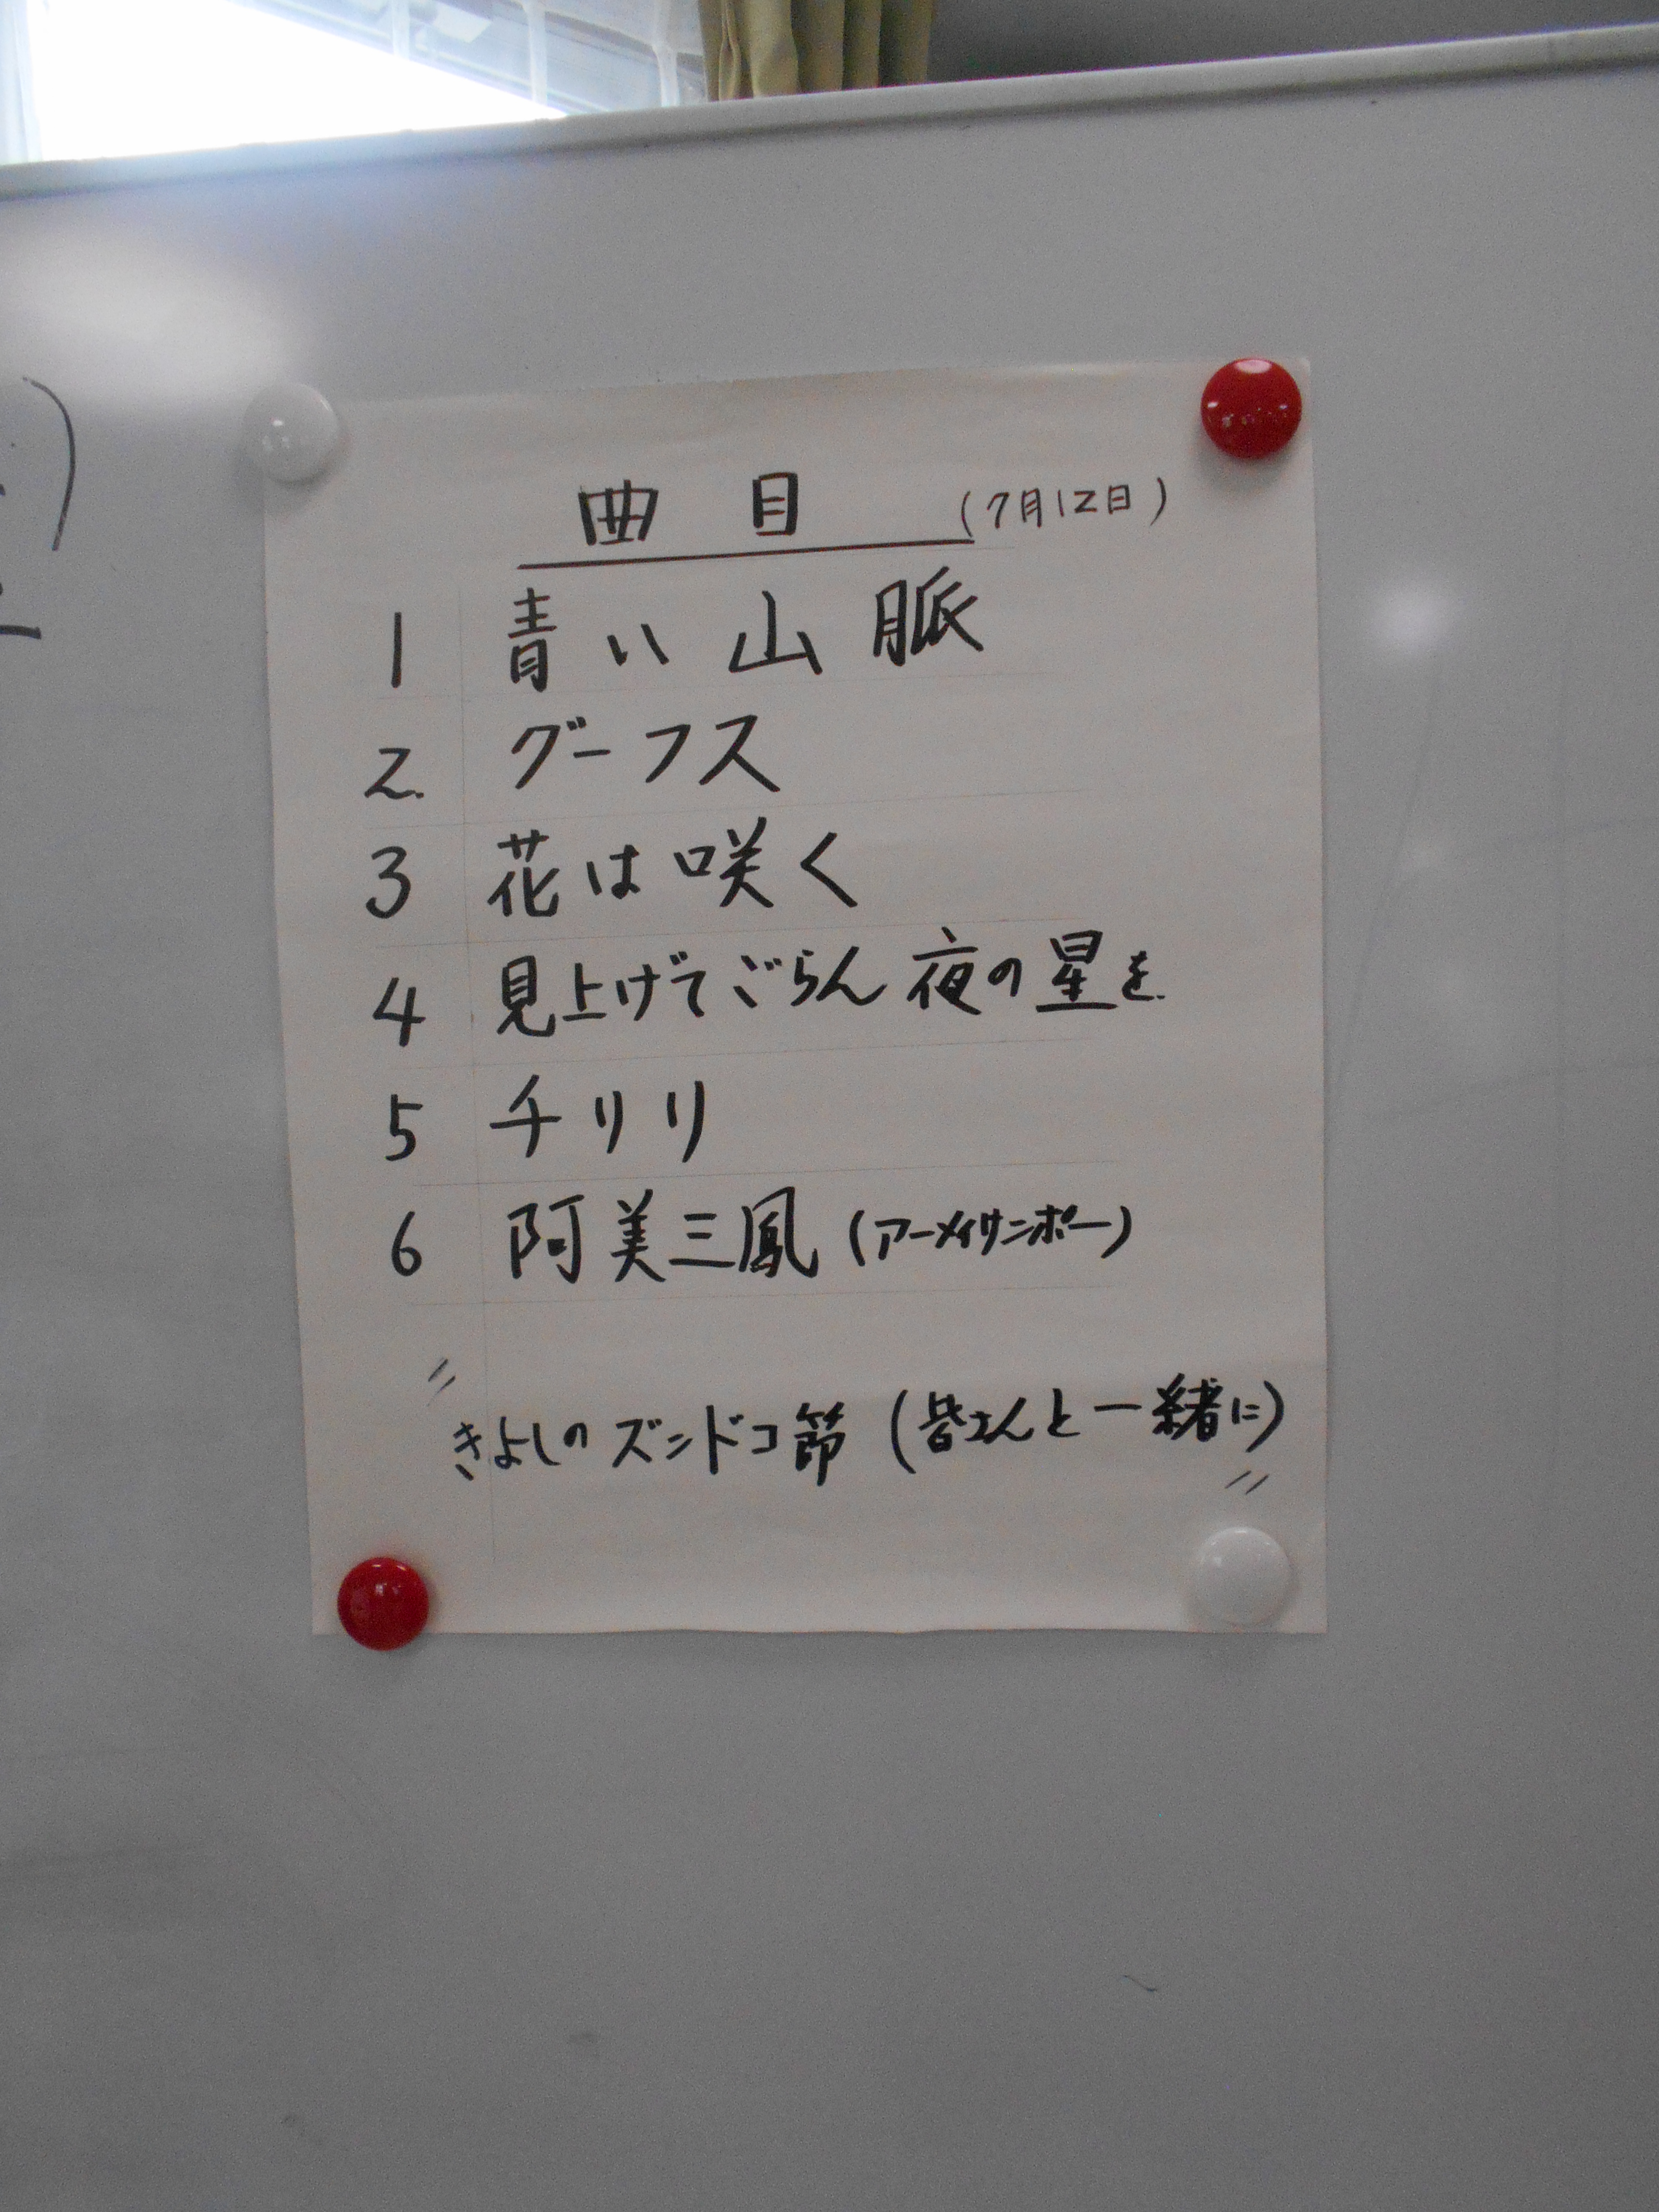 曲目 (7月12日)
1 青い山脈
2. グーフス
3 花は咲く
4 見上げてごらん夜の星を.
5 チリリ
6 阿美三鳳 (アーメイサンポー)
〃
きよしのズンドコ節 (皆さんと一緒に)
〃